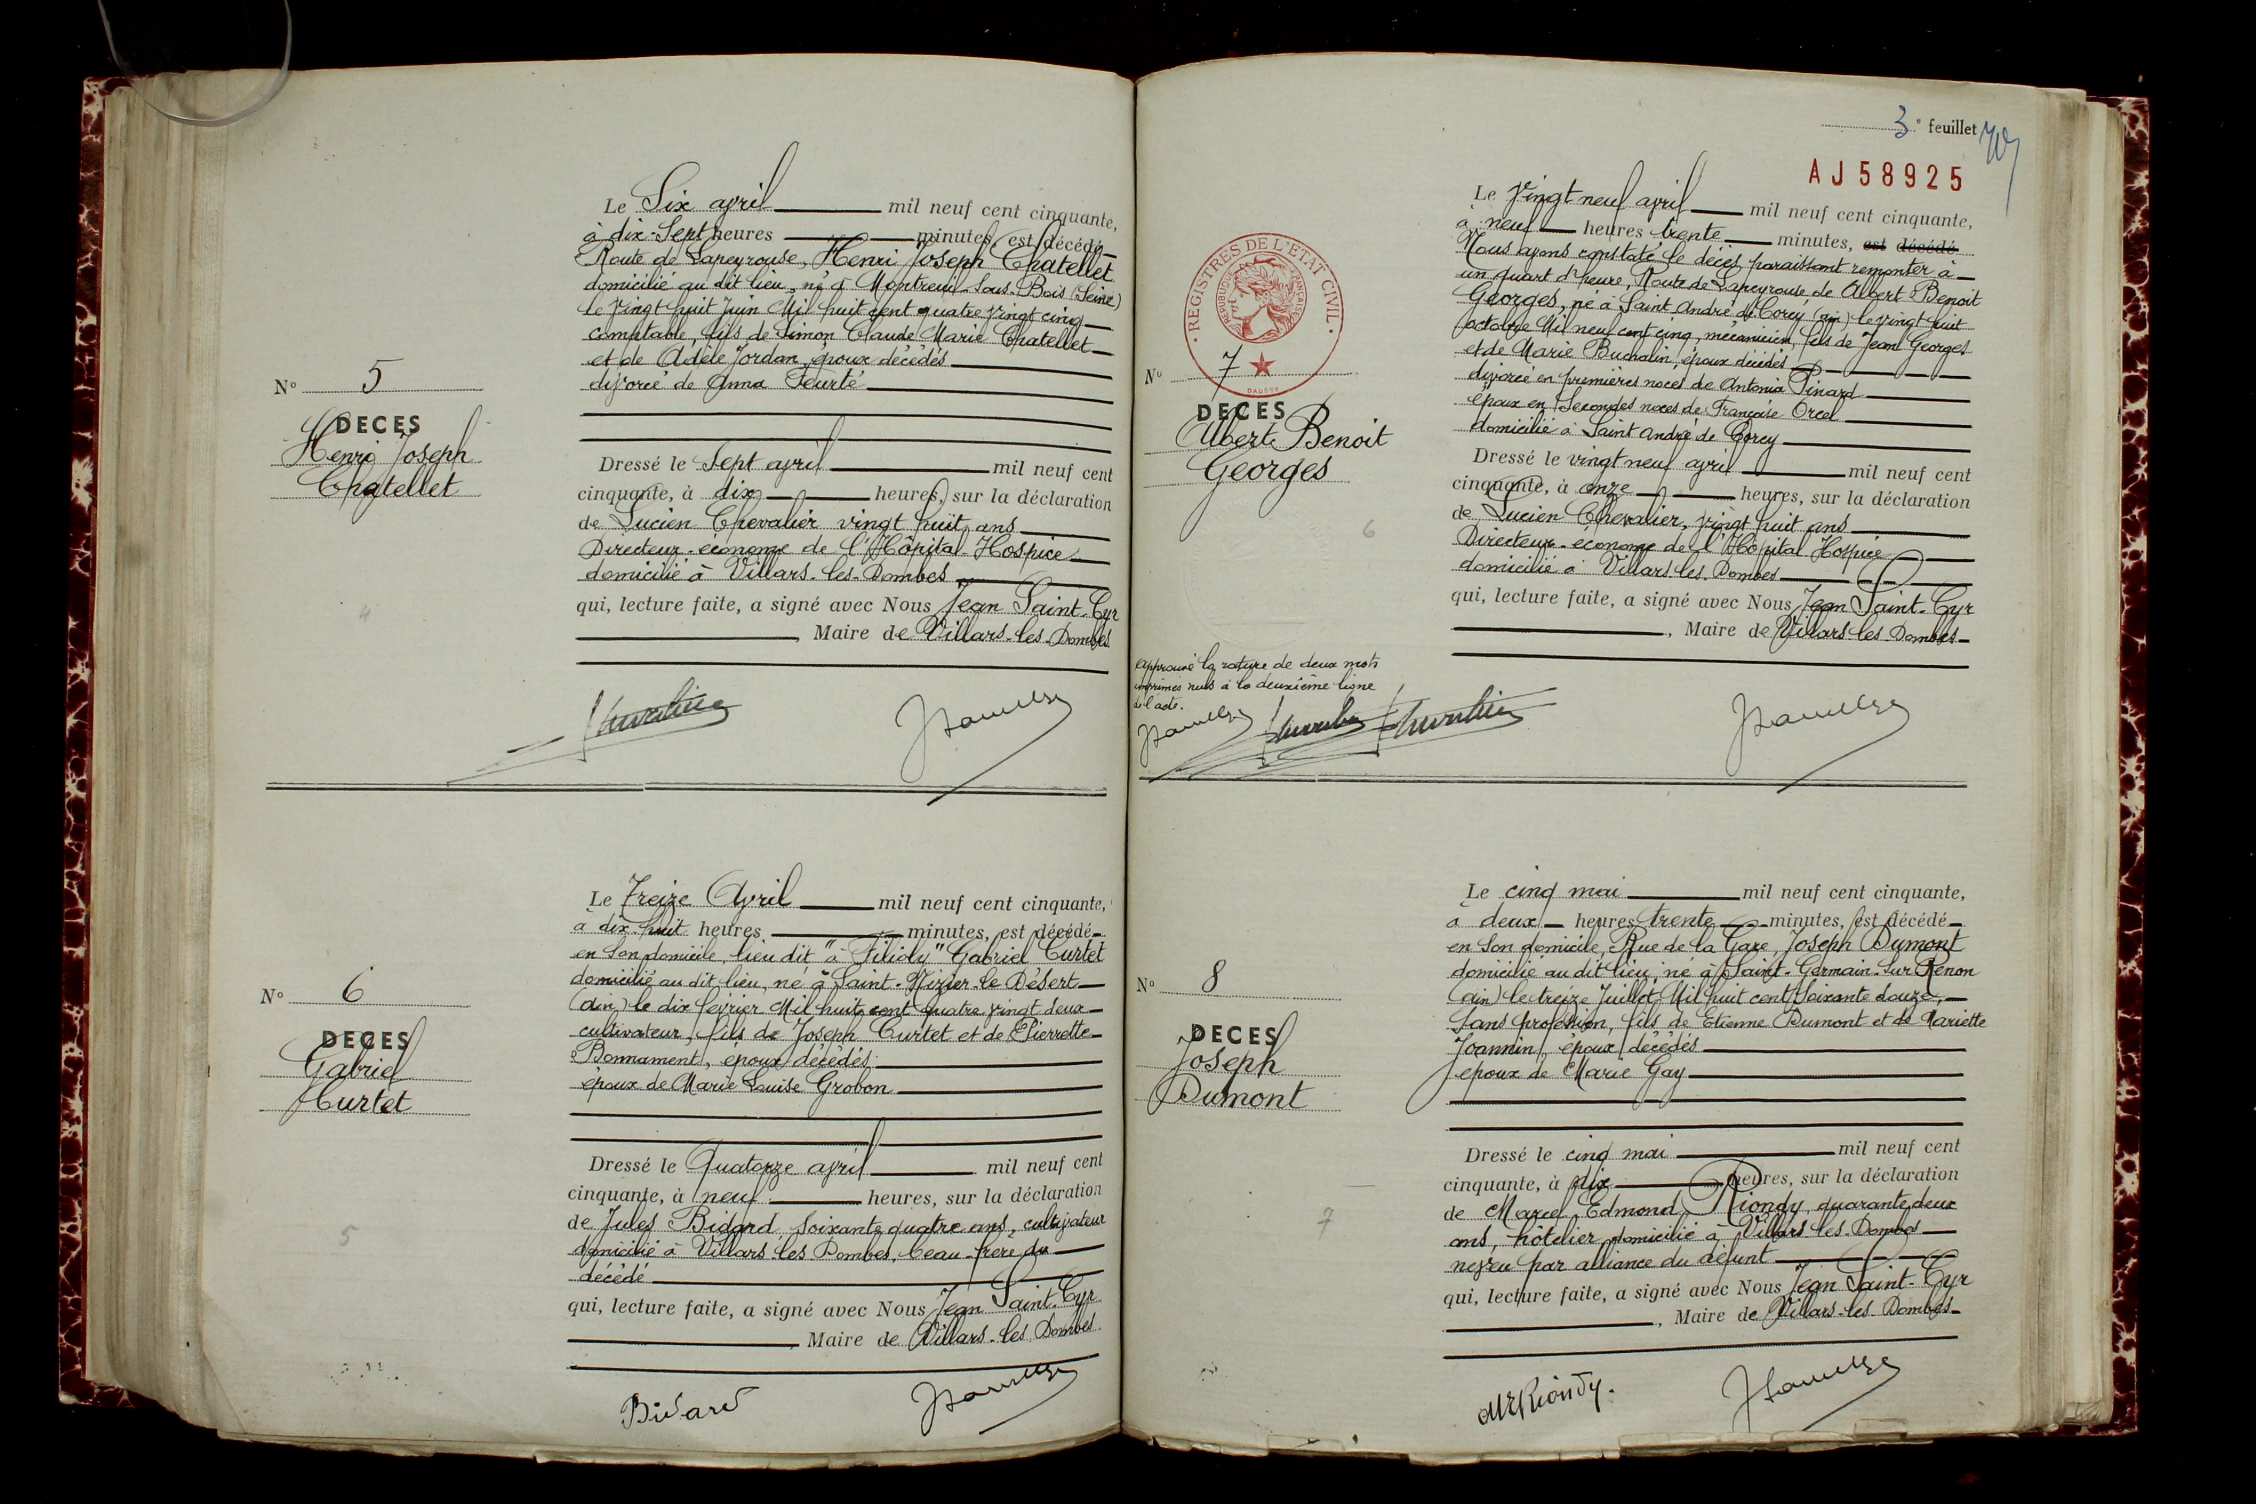 Le Six avril mil neuf cent cinquante,
à dix-Sept heures minutes, est décédé
Route de Lapeyrouse, Henri Joseph Chatellet
domicilié au dit lieu, né à Montreuil-Sous-Bois (Seine)
le vingt huit Juin Mil huit cent quatre vingt cinq
comptable, fils de Simon Claude Marie Chatellet
et de Adèle Jordan, époux décédés
divorcé de Anna
N° 5
DECES
Henri Joseph
Chatellet
Dressé le Sept avril mil neuf cent
cinquante, à dix heures, sur la déclaration
de Lucien Chevalier vingt huit ans
Directeur-économe de l'Hôpital-Hospice
domicilié à Villars-les-Dombes
qui, lecture faite, a signé avec Nous Jean Saint-Cyr
Maire de Villars-les-Dombes
4
Le Treize Avril mil neuf cent cinquante,
à dix huit heures minutes, est décédé
en Son domicile, lieu dit "à Filioly" Gabriel Curtet
domicilié au dit lieu, né à Saint-Nizier-le-Désert
(Ain) le dix février Mil huit cent quatre vingt deux
cultivateur, fils de Joseph Curtet et de Pierrette
Bonnament, époux décédés
époux de Marie Louise Grobon
N° 6
DECES
Gabriel
Curtet
Dressé le Quatorze avril mil neuf cent
cinquante, à neuf heures, sur la déclaration
de Jules Bidard, Soixante quatre ans, cultivateur
domicilié à Villars-les-Dombes, beau-frère du
décédé
qui, lecture faite, a signé avec Nous Jean Saint-Cyr
Maire de Villars-les-Dombes
5
Bidard
3e feuillet
AJ58925
REGISTRES DE L'ETAT CIVIL
REPUBLIQUE FRANÇAISE
Le Vingt neuf avril mil neuf cent cinquante,
à neuf heures trente minutes, est décédé
Nous avons constaté le décès paraissant remonter à
un quart d'heure, Route de Lapeyrouse de Albert Benoit
Georges, né à Saint André de Corcy (Ain) le vingt huit
octobre Mil neuf cent cinq, mécanicien, fils de Jean Georges
et de Marie Buchalin époux décédés
divorcé en premières noces de Antonia Pinard
époux en Secondes noces de Françoise Orcel
domicilié à Saint André de Corcy
N° 7
DECES
Albert Benoit
Georges
Dressé le vingt neuf avril mil neuf cent
cinquante, à onze heures, sur la déclaration
de Lucien Chevalier, vingt huit ans
Directeur-économe de l'Hôpital Hospice
domicilié à Villars-les-Dombes
qui, lecture faite, a signé avec Nous Jean Saint-Cyr
, Maire de Villars-les-Dombes
6
Approuvé la rature de deux mots
imprimés nuls à la deuxième ligne
de l'acte.
Le cinq mai mil neuf cent cinquante,
à deux heures trente minutes, est décédé
en Son domicile, Rue de la Gare, Joseph Dumont
domicilié au dit lieu, né à Saint-Germain-Sur Renon
(Ain) le treize Juillet Mil huit cent Soixante douze,
Sans profession, fils de Etienne Dumont et de Mariette
Joannin, époux décédés
époux de Marie Gay
N° 8
DECES
Joseph
Dumont
Dressé le cinq mai mil neuf cent
cinquante, à dix heures, sur la déclaration
de Marcel Edmond Riondy, quarante deux
ans, hôtelier, domicilié à Villars-les-Dombes
neveu par alliance du défunt
qui, lecture faite, a signé avec Nous Jean Saint-Cyr
, Maire de Villars-les-Dombes
7
MRiondy.